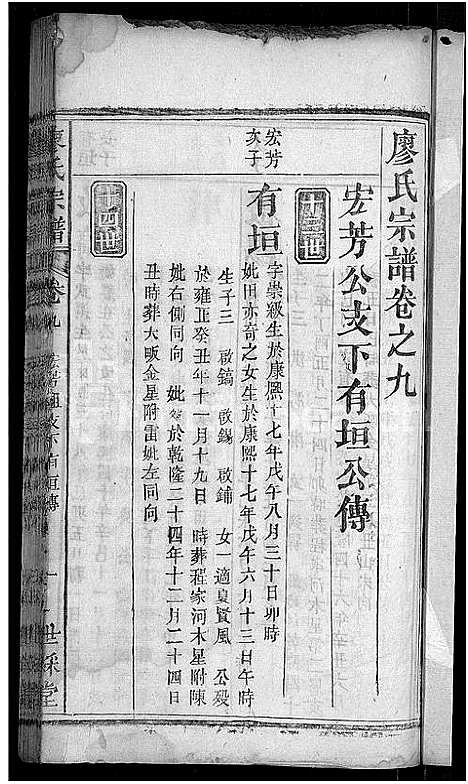 廖氏宗譜卷之九
宏芳公支下有垣公傳
十三世
宏芳
次子
有垣
字崇級生於康熙十七年戊午八月三十日卯時
妣田亦奇之女生於康熙十七年戊午六月十三日午時
生子三 啟鎬 啟錫 啟鋪 女一適夏賢風 公殁
於雍正癸丑年十一月十九日 時葬程家河木星附陳
妣右側同向 妣殁於乾隆二十四年十二月二十四日
丑時葬大畈金星附雷妣左同向
十四世
廖氏宗譜 卷九 宏芳公支下有垣傳 一 世綵堂